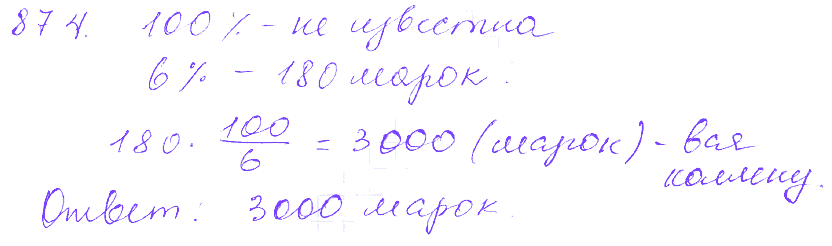 874. 100% - не известна
6% - 180 марок.
180 · 100/6 = 3000 (марок) - вая
коллекц.
Ответ: 3000 марок.